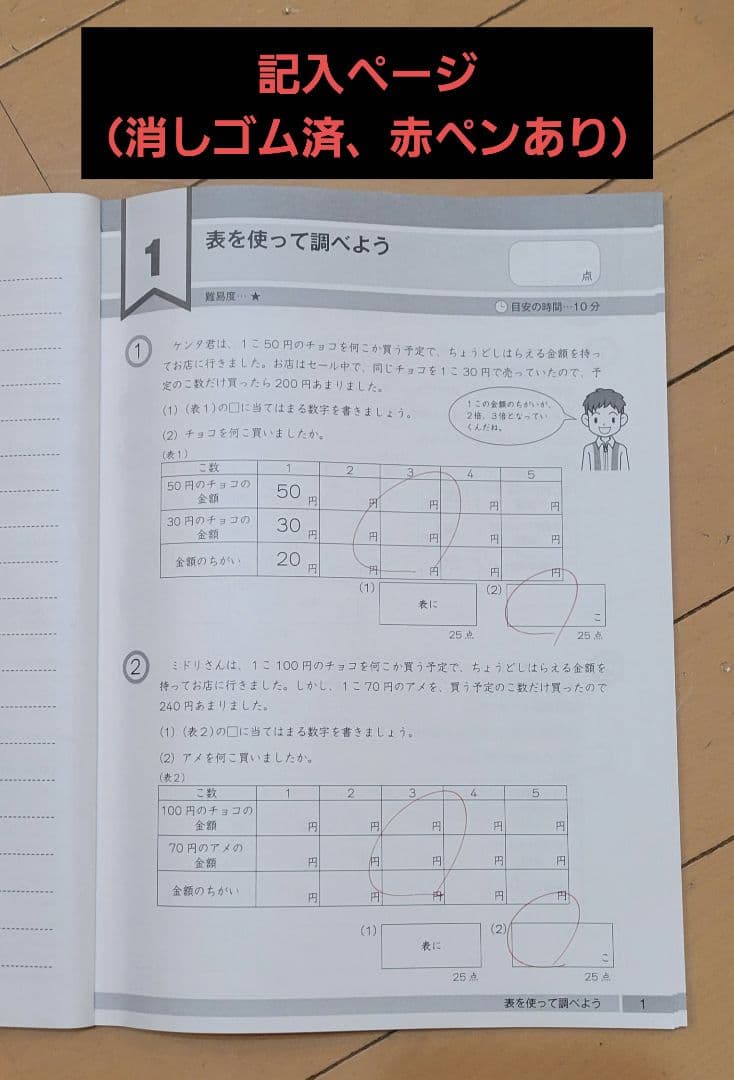 記入ページ
（消しゴム済、赤ペンあり）
1
表を使って調べよう
点
難易度…★
目安の時間…10分
1
ケンタ君は、1こ50円のチョコを何こか買う予定で、ちょうどしはらえる金額を持っ
てお店に行きました。お店はセール中で、同じチョコを1こ30円で売っていたので、予
定のこ数だけ買ったら200円あまりました。
(1)（表1）の□に当てはまる数字を書きましょう。
(2) チョコを何こ買いましたか。
1この金額のちがいが、
2倍、3倍となってい
くんだね。
（表1）
こ数 1 2 3 4 5
50円のチョコの
金額 50円 円 円 円 円
30円のチョコの
金額 30円 円 円 円 円
金額のちがい 20円 円 円 円 円
(1) 表に (2) こ
25点 25点
2
ミドリさんは、1こ100円のチョコを何こか買う予定で、ちょうどしはらえる金額を
持ってお店に行きました。しかし、1こ70円のアメを、買う予定のこ数だけ買ったので
240円あまりました。
(1)（表2）の□に当てはまる数字を書きましょう。
(2) アメを何こ買いましたか。
（表2）
こ数 1 2 3 4 5
100円のチョコの
金額 円 円 円 円 円
70円のアメの
金額 円 円 円 円 円
金額のちがい 円 円 円 円 円
(1) 表に (2) こ
25点 25点
表を使って調べよう 1